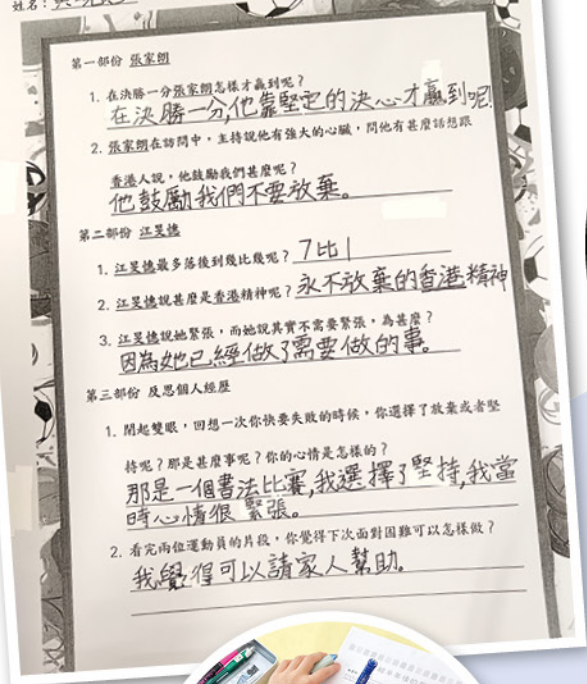 姓名：
第一部份 張家朗
1. 在決勝一分張家朗怎樣才贏到呢？
在決勝一分,他靠堅定的決心才贏到呢!
2. 張家朗在訪問中，主持說他有強大的心臟，問他有甚麼話想跟
香港人說，他鼓勵我們甚麼呢？
他鼓勵我們不要放棄。
第二部份 江旻憓
1. 江旻憓最多落後到幾比幾呢？ 7比1
2. 江旻憓說甚麼是香港精神呢？ 永不放棄的香港精神
3. 江旻憓說她緊張，而她說其實不需要緊張，為甚麼？
因為她已經做了需要做的事。
第三部份 反思個人經歷
1. 閉起雙眼，回想一次你快要失敗的時候，你選擇了放棄或者堅
持呢？那是甚麼事呢？你的心情是怎樣的？
那是一個書法比賽,我選擇了堅持,我當
時心情很緊張。
2. 看完兩位運動員的片段，你覺得下次面對困難可以怎樣做？
我覺得可以請家人幫助。